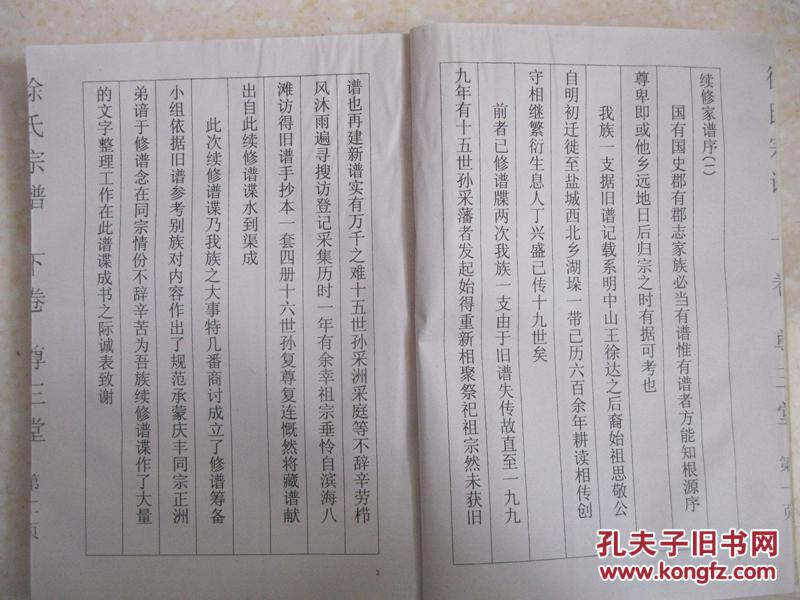 续修家谱序(一)
国有国史郡有郡志家族必当有谱惟有谱者方能知根源序
尊卑即或他乡远地日后归宗之时有据可考也
我族一支据旧谱记载系明中山王徐达之后裔始祖思敬公
自明初迁徙至盐城西北乡湖垛一带己历六百余年耕读相传创
守相继繁衍生息人丁兴盛己传十九世矣
前者已修谱牒两次我族一支由于旧谱失传故直至一九九
九年有十五世孙采藩者发起始得重新相聚祭祀祖宗然未获旧
谱也再建新谱实有万千之难十五世孙采洲采庭等不辞辛劳栉
风沐雨遍寻搜访登记采集历时一年有余幸祖宗垂怜自滨海八
滩访得旧谱手抄本一套四册十六世孙复尊复连慨然将藏谱献
出自此续修谱谍水到渠成
此次续修谱谍乃我族之大事特几番商讨成立了修谱筹备
小组依据旧谱参考别族对内容作出了规范承蒙庆丰同宗正洲
弟谙于修谱念在同宗情份不辞辛苦为吾族续修谱谍作了大量
的文字整理工作在此谱谍成书之际诚表致谢
徐氏宗谱 下卷 尊三堂 第二页
2
卷 尊三堂 第一页
孔夫子旧书网
www.kongfz.com